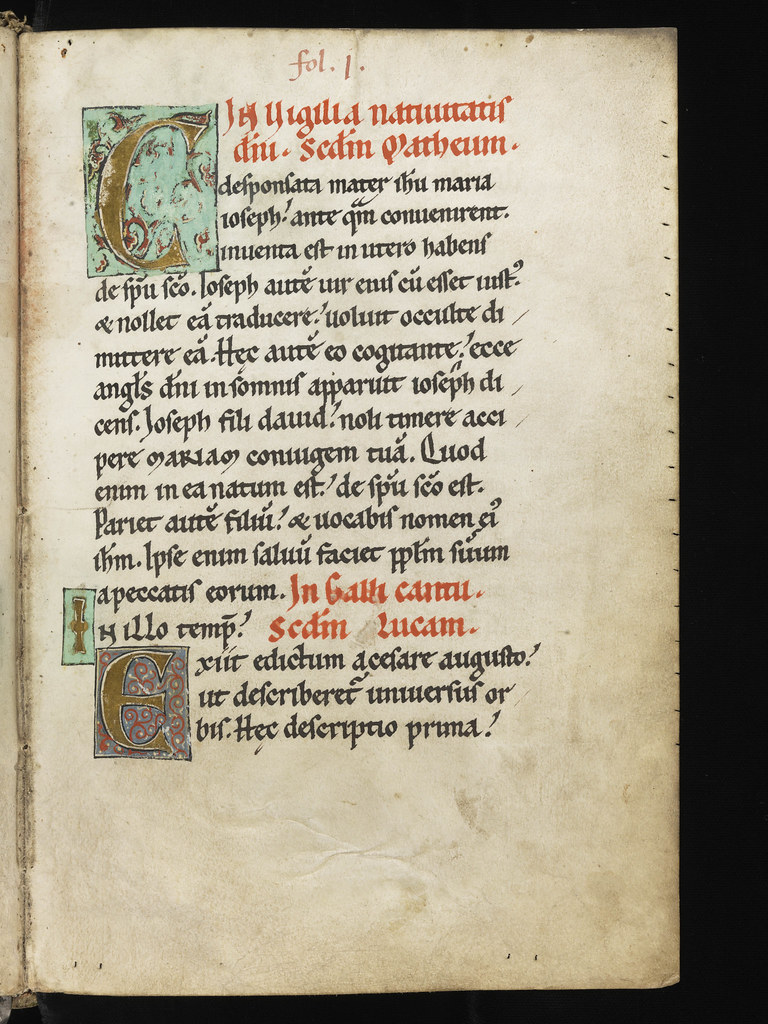 fol. 1.
IN Vigilia natiuitatis
dñi. Scdm Matheum.
C
desponsata mater ihu maria
ioseph? ante qm conuenirent.
inuenta est in utero habens
de spu sco. Ioseph autē uir eius cū esset iustꝰ
& nollet eā traducere? uoluit occulte di
mittere eā. Hęc autē eo cogitante? ecce
angls dñi in somnis apparuit ioseph di
cens. Ioseph fili dauid? noli timere acci
pere MARIAM coniugem tuā. Quod
enim in ea natum est? de spu sco est.
Pariet autē filiū? & uocabis nomen eiꝰ
ihm. Ipse enim saluū faciet pplm suum
a peccatis eorum. In Galli cantu.
IN illo temp̄? Scdm Lucam.
Exiit edictum a cesare augusto?
ut describeret᷑ uniuersus or
bis. Hęc descriptio prima?